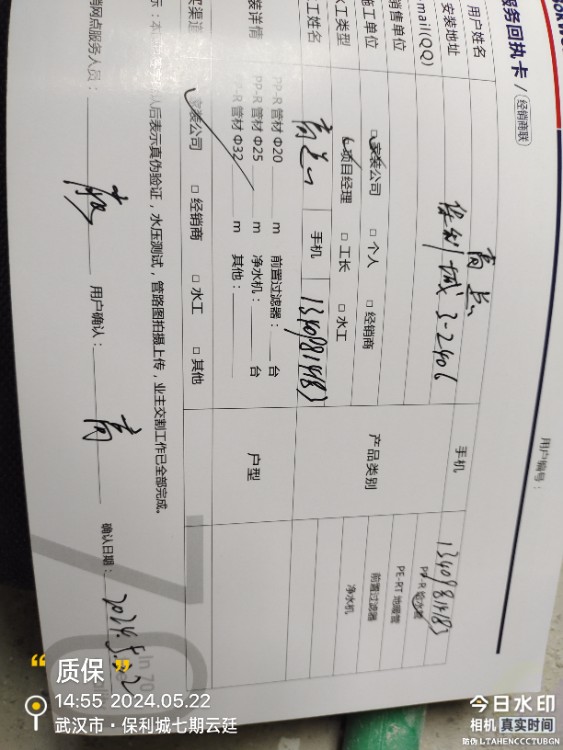 服务回执卡 / 经销商联
用户编号：
用户姓名 手机
安装地址 保利城 3-2406
-mail(QQ)
销售单位 产品类别 PP-R 给水管
施工单位 安装公司 □ 个人 □ 经销商 PE-RT 地暖管
水工类型 项目经理 □ 工长 □ 水工 前置过滤器
工姓名 手机 净水机
装详情 PP-R 管材 Φ20 m 前置过滤器： 台 户型
PP-R 管材 Φ25 m 净水机： 台
PP-R 管材 Φ32 m 其他：
买渠道 安装公司 □ 经销商 □ 水工 □ 其他
后表示真伪验证，水压测试，管路图拍摄上传，业主交割工作已全部完成。
销网点服务人员： 用户确认： 高 确认日期： 2024.5.22
“ 质保 ”
14:55 2024.05.22
武汉市·保利城七期云廷
今日水印
相机 真实时间
防伪 LTAHENCCCTUBGN